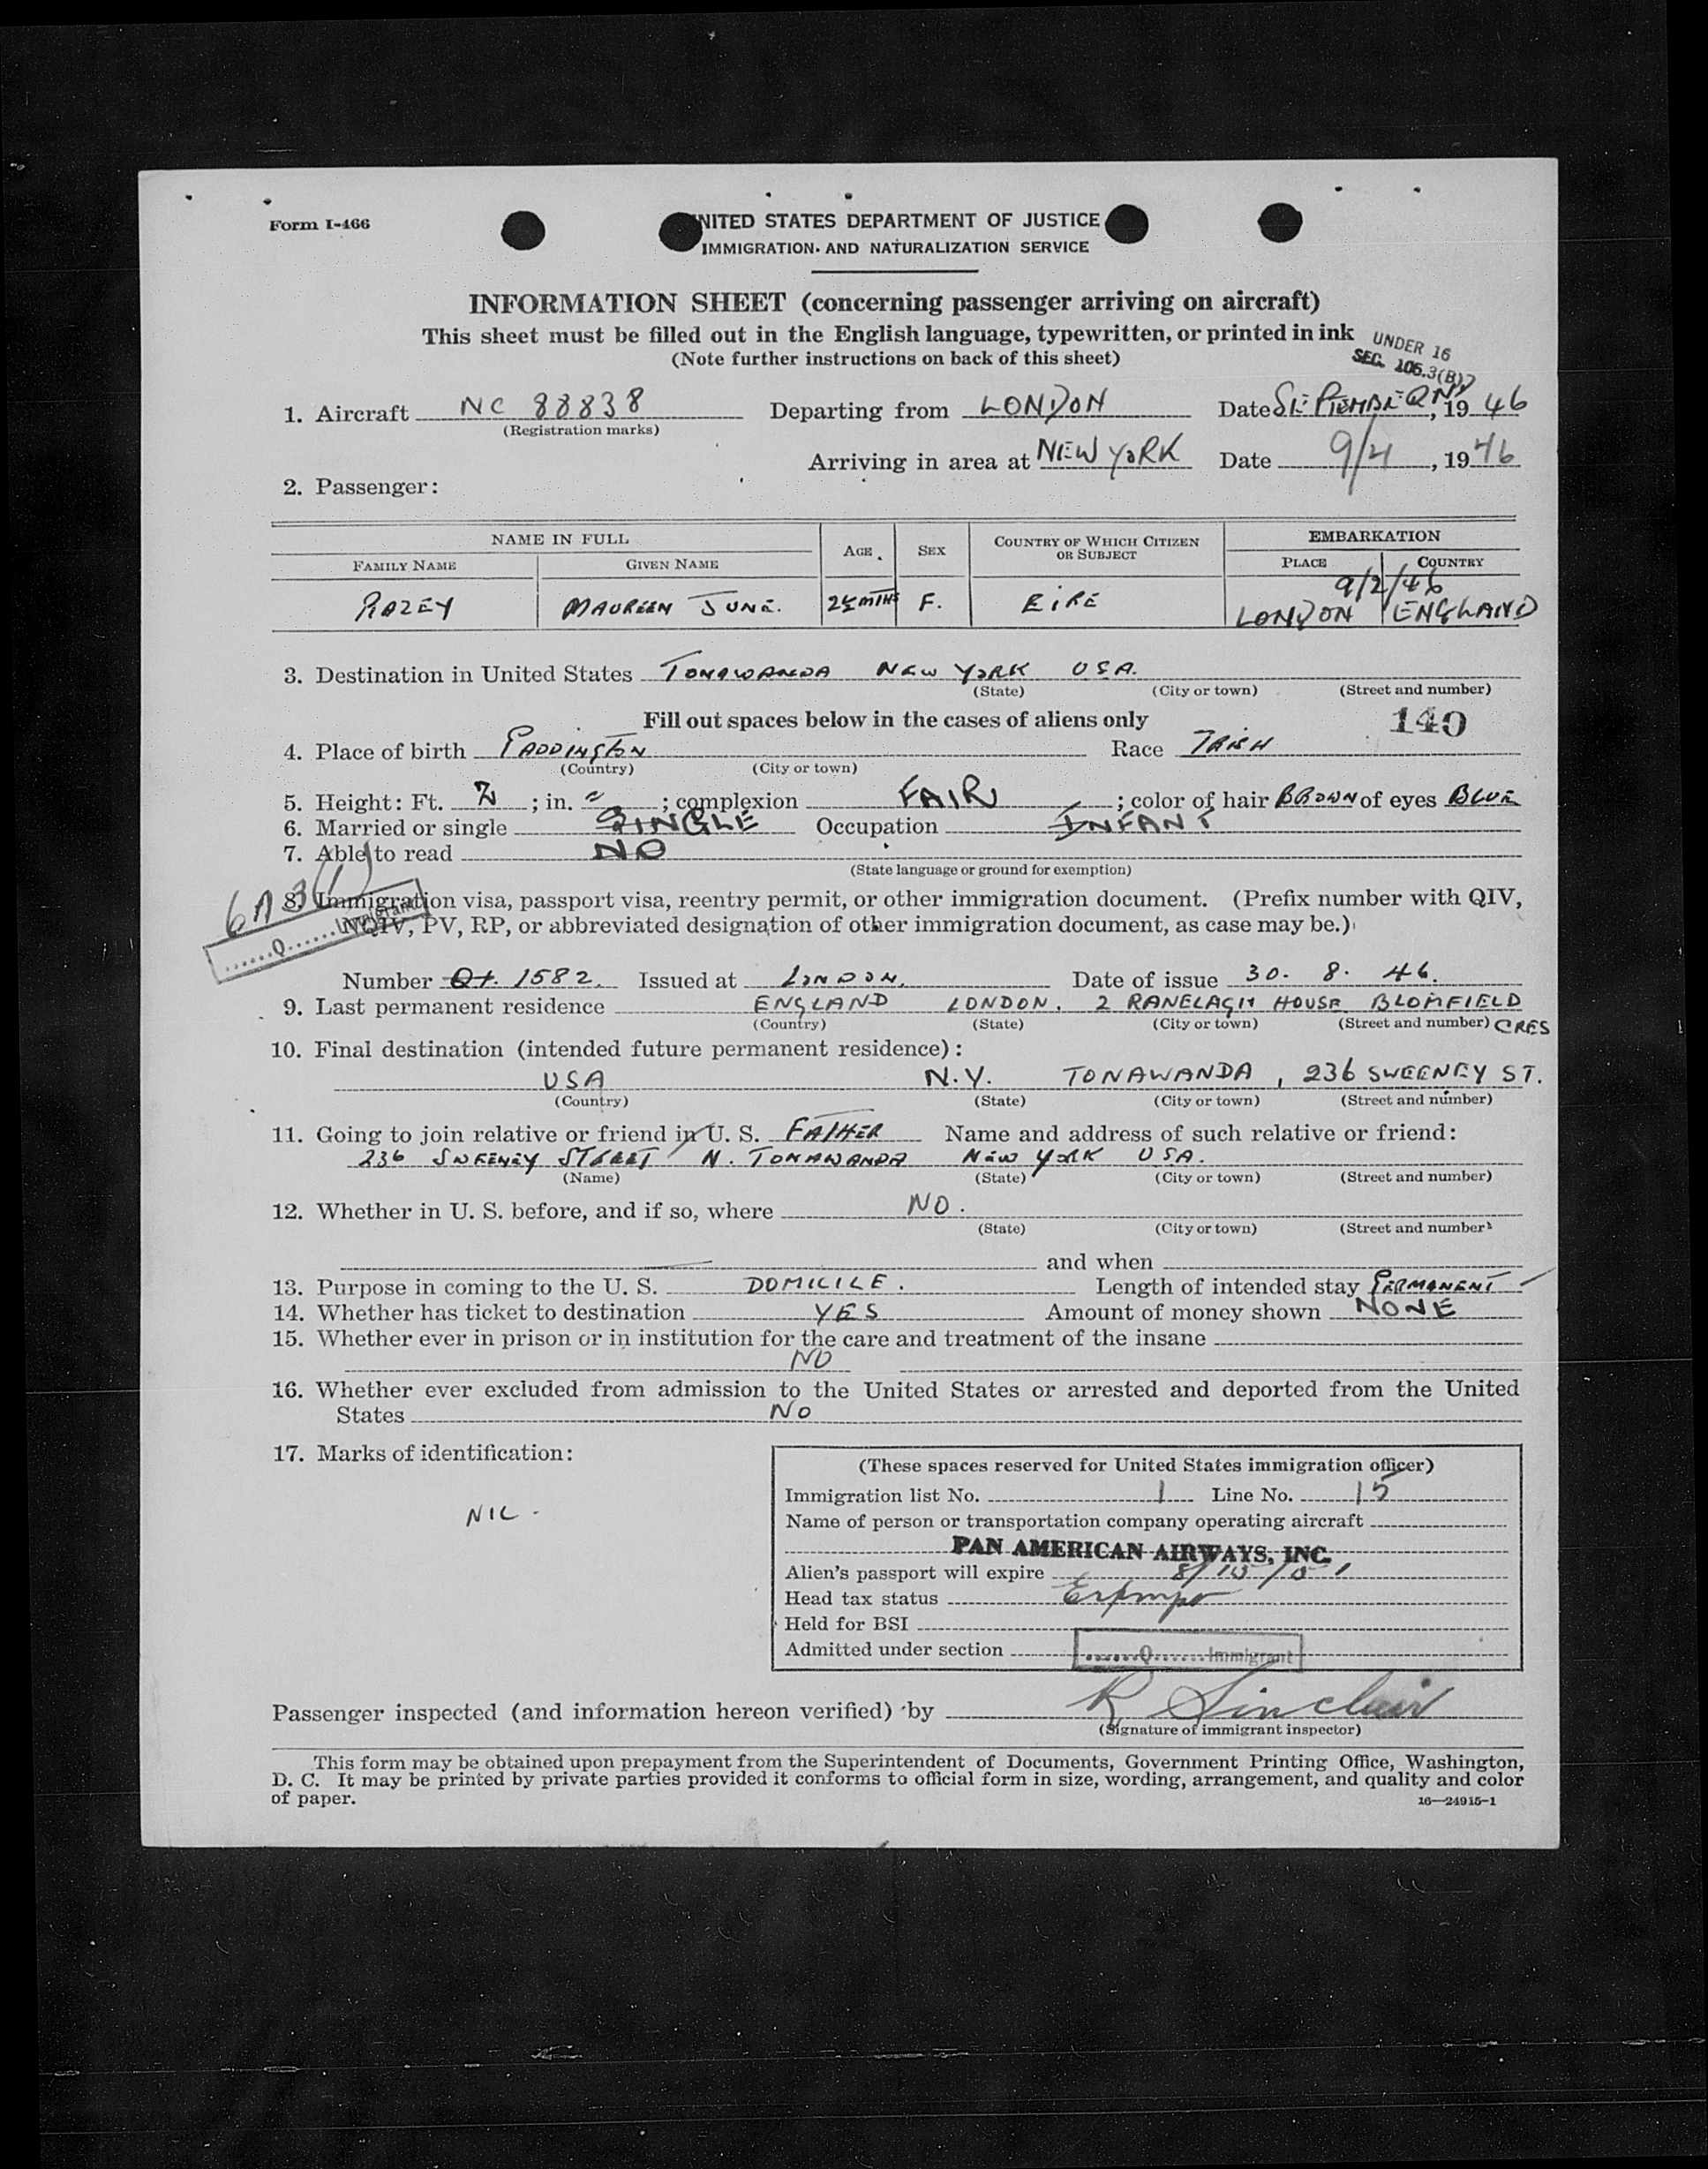 Form I-466
UNITED STATES DEPARTMENT OF JUSTICE
IMMIGRATION AND NATURALIZATION SERVICE
INFORMATION SHEET (concerning passenger arriving on aircraft)
This sheet must be filled out in the English language, typewritten, or printed in ink
(Note further instructions on back of this sheet)
UNDER 16
SEC. 105.3(B)
1. Aircraft NC 88838 Departing from LONDON Date SEPTEMBER 2ND, 1946
(Registration marks)
Arriving in area at NEW YORK Date 9/4, 1946
2. Passenger:
NAME IN FULL AGE SEX COUNTRY OF WHICH CITIZEN OR SUBJECT EMBARKATION
FAMILY NAME GIVEN NAME PLACE COUNTRY
9/2/46
ROZEY MAUREEN JUNE. 2½ MTHS F. EIRE LONDON ENGLAND
3. Destination in United States TONAWANDA NEW YORK USA.
(State) (City or town) (Street and number)
Fill out spaces below in the cases of aliens only 140
4. Place of birth PADDINGTON Race IRISH
(Country) (City or town)
5. Height: Ft. 2 ; in. ; complexion FAIR ; color of hair BROWN of eyes BLUE
6. Married or single SINGLE Occupation INFANT
7. Able to read NO
(State language or ground for exemption)
6A3(1)
8. Immigration visa, passport visa, reentry permit, or other immigration document. (Prefix number with QIV,
NQIV, PV, RP, or abbreviated designation of other immigration document, as case may be.)
......Q......Immigrant
Number QI. 1582. Issued at LONDON. Date of issue 30. 8. 46.
9. Last permanent residence ENGLAND LONDON. 2 RANELAGH HOUSE BLOMFIELD
(Country) (State) (City or town) (Street and number) CRES
10. Final destination (intended future permanent residence):
USA N.Y. TONAWANDA, 236 SWEENEY ST.
(Country) (State) (City or town) (Street and number)
11. Going to join relative or friend in U. S. FATHER Name and address of such relative or friend:
236 SWEENEY STREET N. TONAWANDA NEW YORK USA.
(Name) (State) (City or town) (Street and number)
12. Whether in U. S. before, and if so, where NO.
(State) (City or town) (Street and number)
and when
13. Purpose in coming to the U. S. DOMICILE. Length of intended stay PERMANENT
14. Whether has ticket to destination YES Amount of money shown NONE
15. Whether ever in prison or in institution for the care and treatment of the insane
NO
16. Whether ever excluded from admission to the United States or arrested and deported from the United
States NO
17. Marks of identification:
NIL -
(These spaces reserved for United States immigration officer)
Immigration list No. 1 Line No. 15
Name of person or transportation company operating aircraft
PAN AMERICAN AIRWAYS, INC.
Alien's passport will expire
Head tax status
Held for BSI
Admitted under section ......Q......Immigrant
Passenger inspected (and information hereon verified) by R Sinclair
(Signature of immigrant inspector)
This form may be obtained upon prepayment from the Superintendent of Documents, Government Printing Office, Washington,
D. C. It may be printed by private parties provided it conforms to official form in size, wording, arrangement, and quality and color
of paper.
16—24915-1